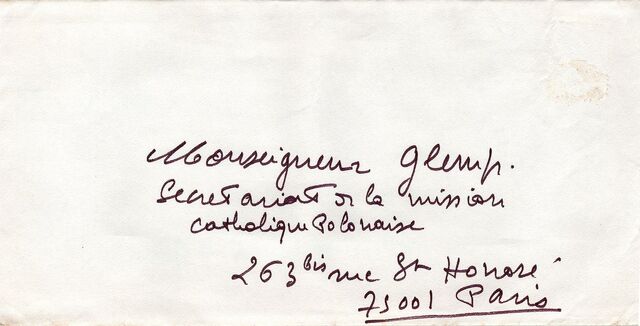 Monseigneur Glemp.
Secretariat de la mission
catholique Polonaise
263 bis rue St Honoré
75001 Paris